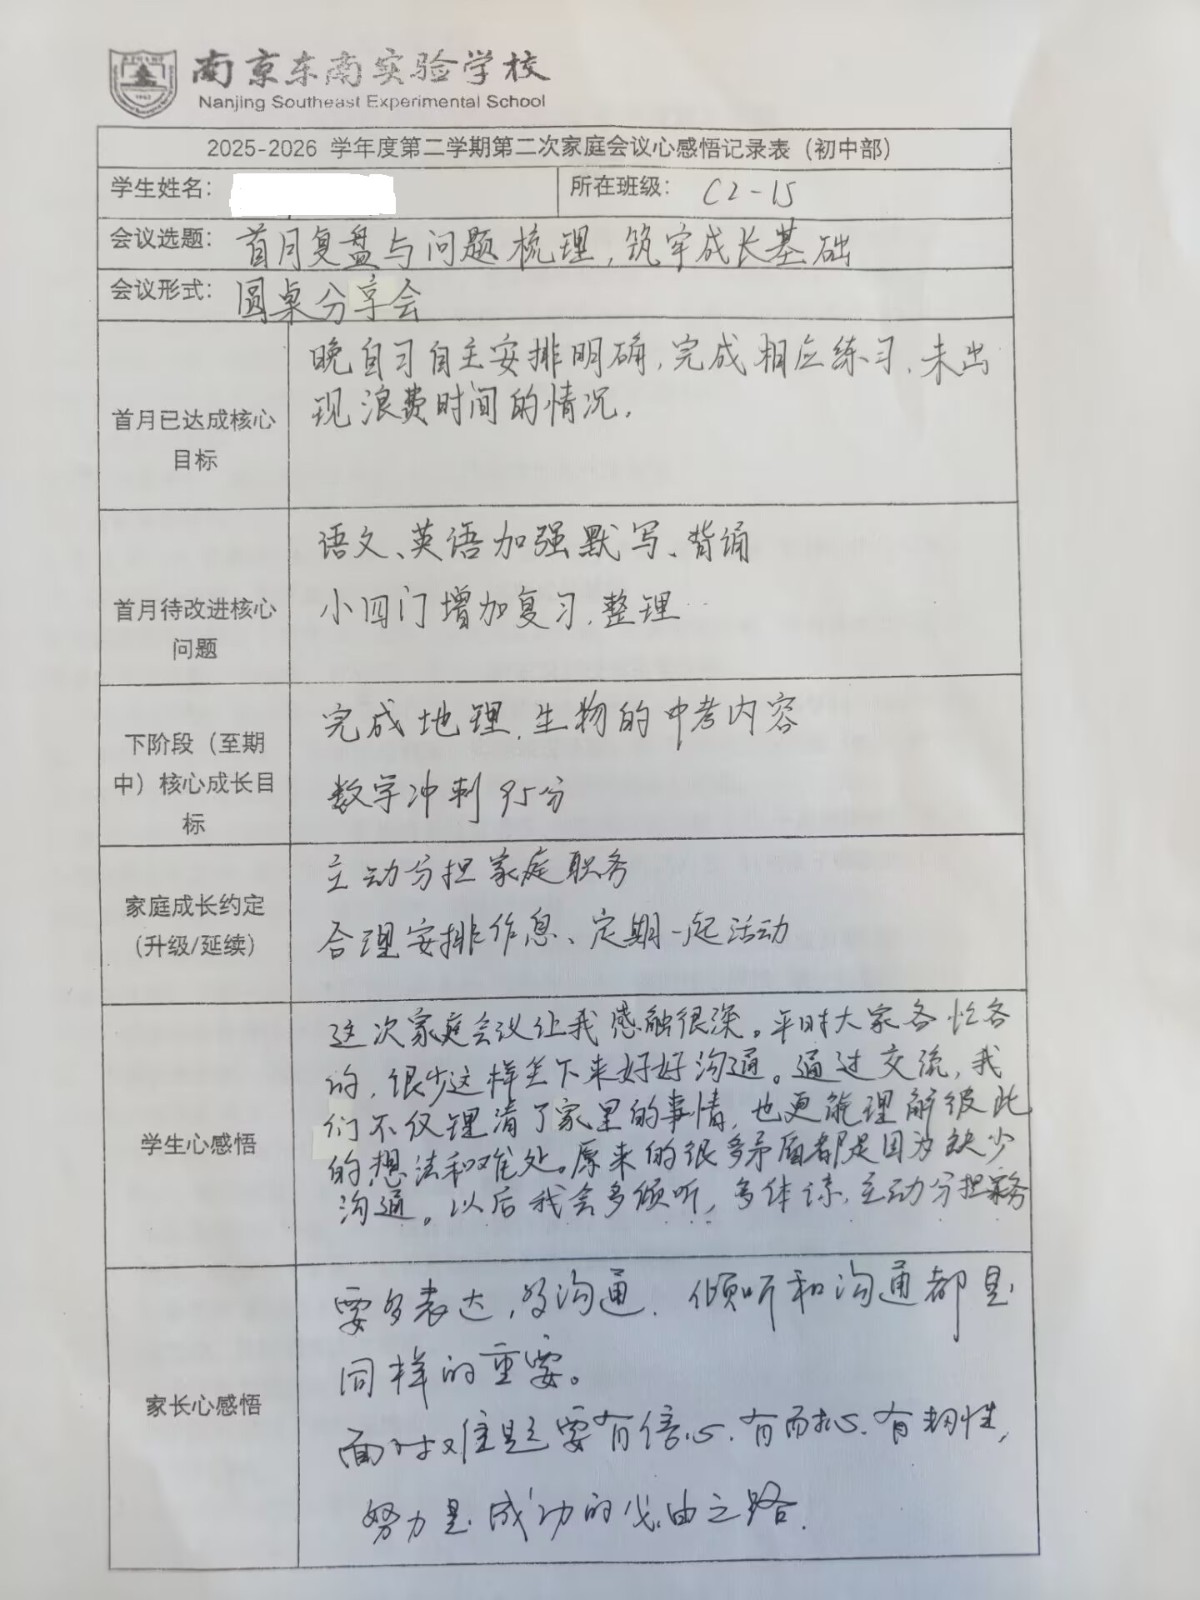 南京东南实验学校
Nanjing Southeast Experimental School
2025-2026 学年度第二学期第二次家庭会议心感悟记录表（初中部）
学生姓名：
所在班级： C2-15
会议选题： 首月复盘与问题梳理，筑牢成长基础
会议形式： 圆桌分享会
首月已达成核心
目标
晚自习自主安排明确，完成相应练习，未出
现浪费时间的情况。
首月待改进核心
问题
语文、英语加强默写、背诵
小四门增加复习、整理
下阶段（至期
中）核心成长目
标
完成地理、生物的中考内容
数学冲刺95分
家庭成长约定
（升级/延续）
主动分担家庭职务
合理安排作息、定期一起活动
学生心感悟
这次家庭会议让我感触很深。平时大家各忙各
的，很少这样坐下来好好沟通。通过交流，我
们不仅理清了家里的事情，也更能理解彼此
的想法和难处。原来的很多矛盾都是因为缺少
沟通。以后我会多倾听，多体谅，主动分担家务
家长心感悟
要多表达，多沟通。倾听和沟通都是
同样的重要。
面对难题要有信心、有耐心、有韧性，
努力是成功的必由之路。